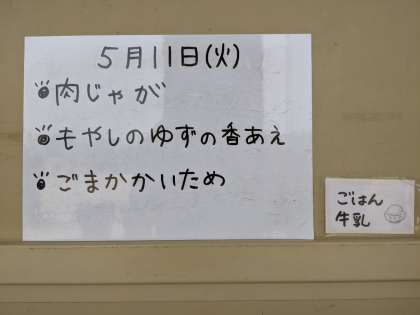 5月11日(火)
肉じゃが
もやしのゆずの香あえ
ごまかかいため
ごはん
牛乳